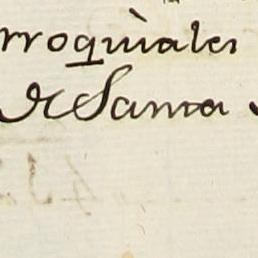 rroquiales
de Santa